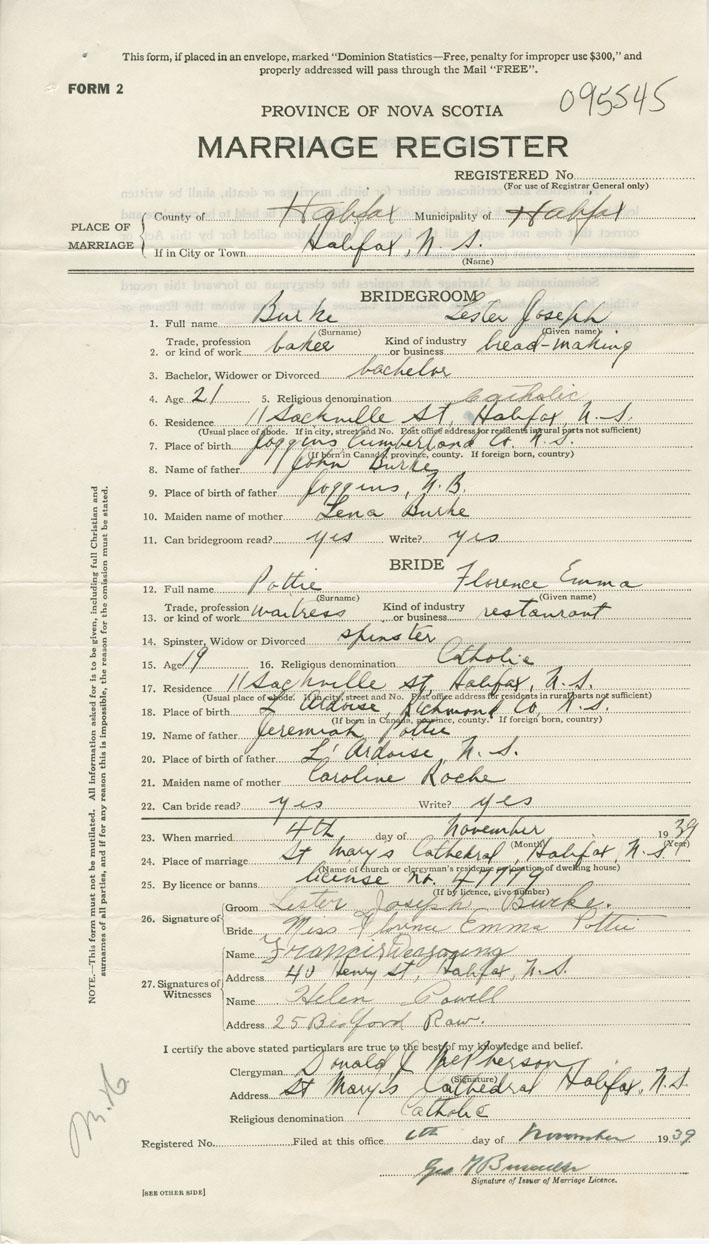 This form, if placed in an envelope, marked "Dominion Statistics—Free, penalty for improper use $300," and
properly addressed will pass through the Mail "FREE".
FORM 2
095545
PROVINCE OF NOVA SCOTIA
MARRIAGE REGISTER
REGISTERED No.
(For use of Registrar General only)
PLACE OF MARRIAGE
County of Halifax Municipality of Halifax
If in City or Town Halifax, N. S.
(Name)
BRIDEGROOM
1. Full name Burke Lester Joseph
(Surname) (Given name)
2. Trade, profession or kind of work baker Kind of industry or business bread-making
3. Bachelor, Widower or Divorced bachelor
4. Age 21 5. Religious denomination Catholic
6. Residence 11 Sackville St, Halifax, N. S.
(Usual place of abode. If in city, street and No. Post office address for residents in rural parts not sufficient)
7. Place of birth Joggins Cumberland Co. N. S.
(If born in Canada, province, county. If foreign born, country)
8. Name of father John Burke
9. Place of birth of father Joggins, N. B.
10. Maiden name of mother Lena Burke
11. Can bridegroom read? yes Write? yes
BRIDE
12. Full name Pottie Florence Emma
(Surname) (Given name)
13. Trade, profession or kind of work waitress Kind of industry or business restaurant
14. Spinster, Widow or Divorced spinster
15. Age 19 16. Religious denomination Catholic
17. Residence 11 Sackville st, Halifax, N. S.
(Usual place of abode. If in city, street and No. Post office address for residents in rural parts not sufficient)
18. Place of birth L'Ardoise, Richmond Co, N. S.
(If born in Canada, province, county. If foreign born, country)
19. Name of father Jeremiah Pottie
20. Place of birth of father L'Ardoise, N. S.
21. Maiden name of mother Caroline Roche
22. Can bride read? yes Write? yes
23. When married 4th day of November 1939
(Month) (Year)
24. Place of marriage St Mary's Cathedral, Halifax, N. S.
(Name of church or clergyman's residence or location of dwelling house)
25. By licence or banns license no.
(If by licence, give number)
26. Signature of
Groom Lester Joseph Burke.
Bride Miss Florence Emma Pottie
27. Signatures of Witnesses
Name Francis
Address 40 Henry st, Halifax, N. S.
Name Helen Powell
Address 25 Bedford Row.
I certify the above stated particulars are true to the best of my knowledge and belief.
Clergyman Donald J McPherson
(Signature)
Address St Mary's Cathedral Halifax, N. S.
Religious denomination Catholic
Registered No. Filed at this office 6th day of November 1939
Geo
Signature of Issuer of Marriage Licence.
[SEE OTHER SIDE]
NOTE.—This form must not be mutilated. All information asked for is to be given, including full Christian and
surnames of all parties, and if for any reason this is impossible, the reason for the omission must be stated.